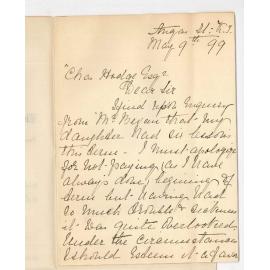 Angas St: K.T.
May 9th 99
"Chas Hodge Esqr
Dear Sir
I find upon Enquiry
from Mr that my
daughter had six lessons
this Term - I must apologize
for not paying (as I have
always done, beginning of
Term but having had
so much trouble & sickness
it was quite overlooked
Under the circumstances
I should Esteem it a favor